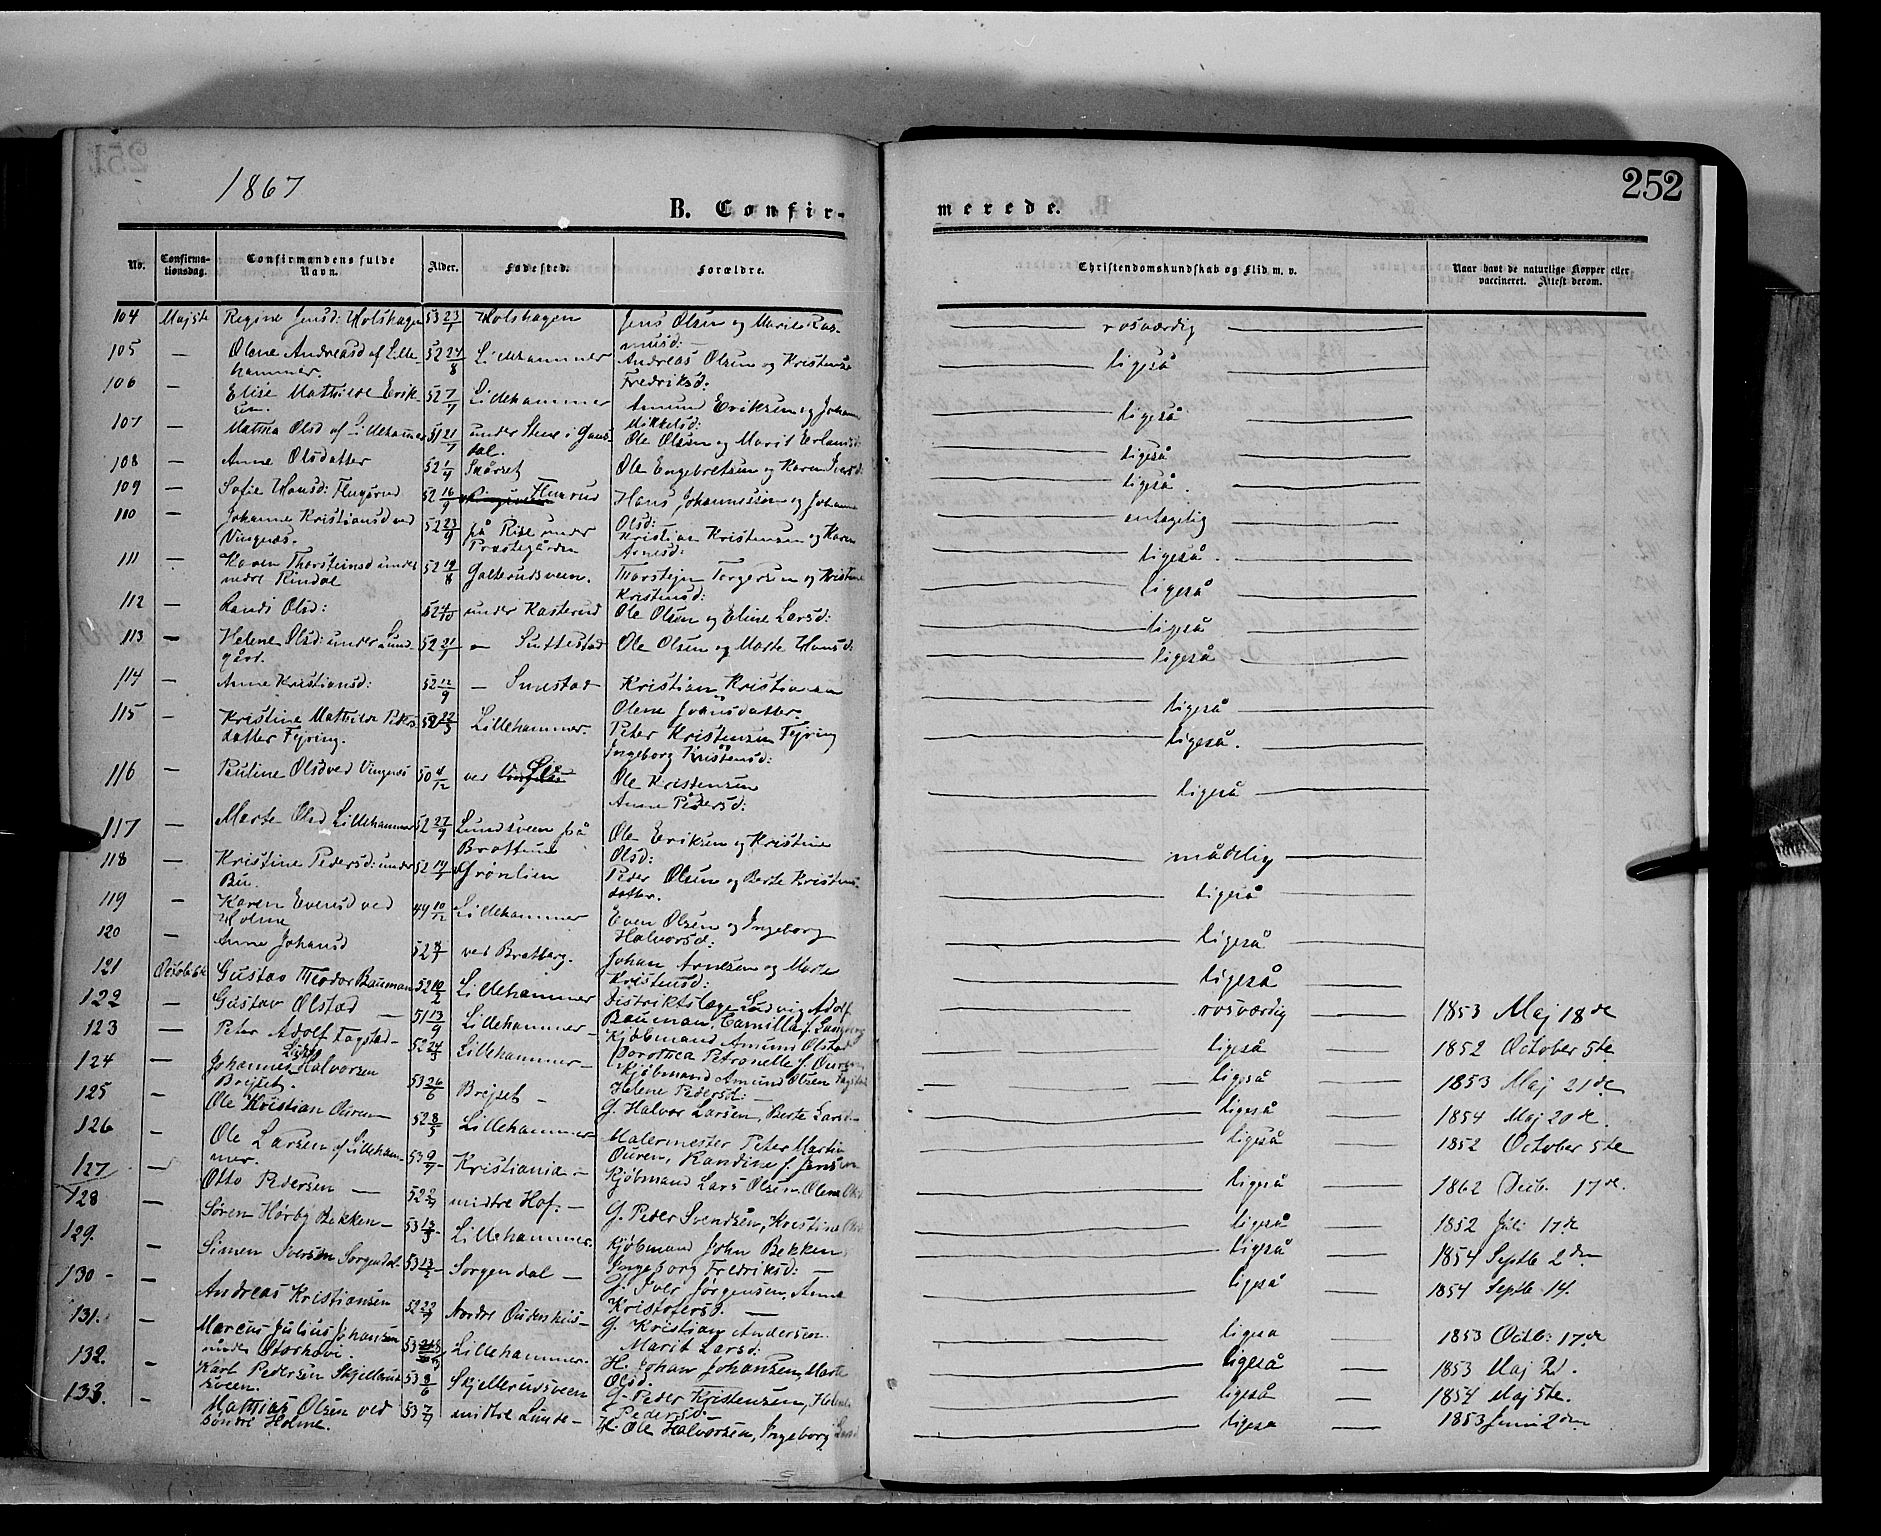 252
1867
B. Confirmerede.
No. Confirmationsdag. Confirmandens fulde Navn. Alder. Fødested. Forældre. Christendomskundskab og Flid m. v. Naar havt de naturlige Kopper eller vaccineret. Attest derom.
104 Maj 5te Regine Jensd: Holshagen 53 23/1 Holshagen Jens Olsen og Marie Rasmusd: — rosværdig
105 — Olene Andreasd af Lillehammer. 52 24/8 Lillehammer Andreas Olsen og Kristense Fredriksd: ligeså
106 — Elise Mathilde Eriksen. 52 7/7 Lillehammer Amund Eriksen og Johanne Mikkelsd: ligeså
107 — Mathea Olsd af Lillehamer 51 21/7 under Stene i Gausdal. Ole Olsen og Marit Erlandsd: ligeså
108 — Anne Olsdatter 52 1/9 Skårset Ole Engebretsen og Karen Iversd: ligeså.
109 — Sofie Hansd: Flugsrud 52 16/9 Flugsrud Hans Johannessen og Johanne Olsd: antagelig
110 — Johanne Kristiansd ved Vingnæs. 52 23/9 på Rise under Præstegården Kristian Kristensen og Karen Arnesd: ligeså.
111 — Karen Thorsteinsd under nedre Rindal 52 19/8 Galterudsveen. Thorstejn Torgersen og Kristine Kristensd: ligeså
112 — Randi Olsd: 52 4/10 under Kasterud Ole Olsen og Eline Larsd: ligeså
113 — Helene Olsd: under Sundgård. 52 21/7 — Suttestad Ole Olsen og Marte Hansd: ligeså
114 — Anne Kristiansd: 52 12/9 — Sunstad Kristian Kristiansen Olene Johansdatter. ligeså
115 — Kristine Mathilde Pedersdatter Fejring. 52 22/3 Lillehammer. Peter Kristensen Fejring Ingeborg Kristensd: ligeså.
116 — Pauline Olsd ved Vingnæs 50 4/12 ved Ole Kristensen Anne Pedersd: ligeså
117 — Marte Olsd Lillehammer 52 27/9 Lundsveen på Brøttum Ole Eriksen og Kristine Olsd: mådelig
118 — Kristine Pedersd: under Bu. 52 14/7 Grønlien Peder Olsen og Berte Kristensdatter. ligeså
119 — Karen Evensd ved Holme 49 10/12 Lillehammer Even Olsen og Ingeborg Halvorsd: ligeså
120 — Anne Johansd 52 8/7 ved Bratberg. Johan Arnesen og Marte Kristensd: ligeså
121 Octobr 6te Gustav Theodor Bauman 52 10/2 Lillehammer Distriktslæge Ludvig Adolf Bauman, Camilla f. Lungberg rosværdig — 1853 Maj 18de
122 — Gustav Olstad — 51 13/9 Lillehammer — Kjøbmand Amund Olstad Dorothea Petronelle f. Ouren ligeså — 1852 October 5te
123 — Peter Adolf Fagstad — 52 24/3 Lillehammer — Kjøbmand Amund Olsen Fagstad Helene Pedersd: — ligeså — 1853 Maj 21de
124 — Johannes Halvorsen Brejset. 53 26/6 Brejset — G. Halvor Larsen, Berte Larsd — ligeså — 1854 Maj 20de.
125 — Ole Kristian Ouren — 52 8/5 Lillehammer — Malermester Peter Martin Ouren, Randine f. Jensen ligeså — 1852 October 5te
126 — Ole Larsen af Lillehammer. 53 9/7 — Kristiania — Kjøbmand Lars Olsen, Olene Olsd ligeså — 1862 Decb. 17de.
127 — Otto Pedersen — 52 2/9 midtre Hof. — G. Peder Svendsen, Kristine Olsd ligeså — 1852 Juli 17de
128 — Søren Hørby Bekken — 53 13/3 — Lillehammer. Kjøbmand John Bekken, Ingeborg Fredriksd: — ligeså — 1854 Septb 2den
129. — Simen Iversen Sorgendal 53 13/2 — Sorgendal — G. Iver Jørgensen, Anne Kristofersd. — ligeså — 1854 Septb 14.
130 — Andreas Kristiansen 52 22/9 Nordre G. Kristian Andersen. Marit Larsd: ligeså — 1853 Octb: 17de
131. — Marcus Julius Johansen under Storhove. 53 Lillehammer. H. Johan Johansen, Marte Olsd. ligeså — 1853 Maj 2d.
132. — Karl Pedersen Skjellerudsveen. 53 8/6 Skjellerudsveen G. Peder Kristensen, Helene Pedersd — ligeså — 1854 Maj 5te.
133. — Mathias Olsen ved søndre Holme. 53 7/9 midtre Lunde — H. Ole Halvorsen, Ingeborg Larsd ligeså — 1853 Juni 2den